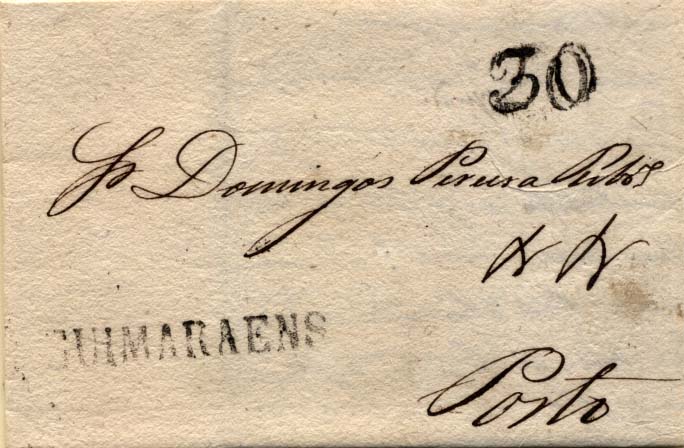 30
Sr. Domingos Pereira Ribro
GUIMARAENS
Porto